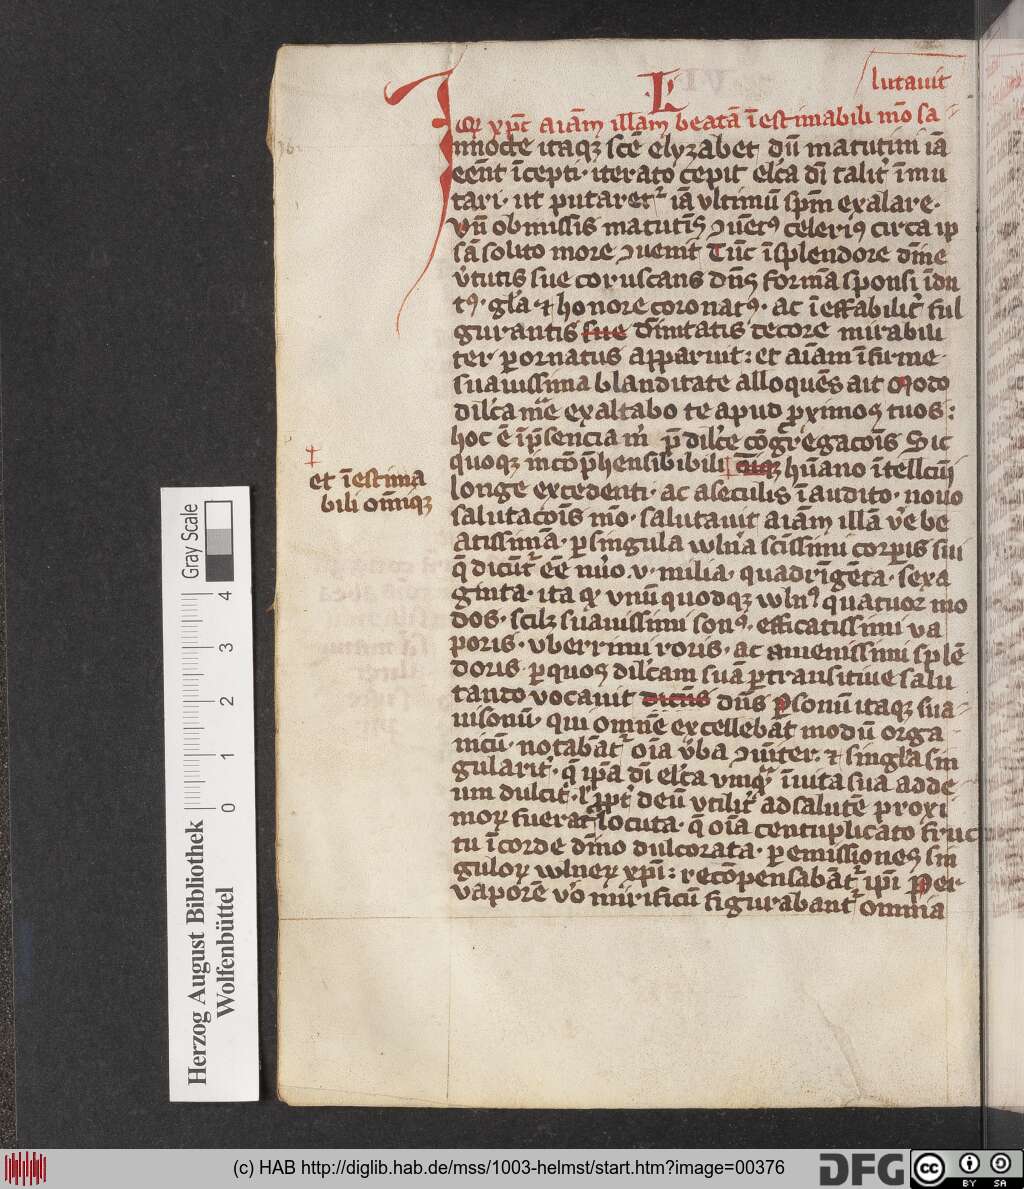 L
lutauit
Qꝛ xpc aīam illam beatā īestimabili mō sa-
In nocte itaqꝫ scē elyzabet dū matutini iā
eēnt īcepti· iterato cepit elc̄a dī talit̾ īmu
tari· ut putaretᷣ iā vltimū spm̄ exalare·
Vn̄ obmissis matutīs ꝯuētꝰ celeriꝰ circa ip
sā solito more ꝯuenit Tūc ī splendore dīne
v̾tutis sue coruscans dn̄s forma sponsi īdu
tꝰ· gl̄a ⁊ honore coronatꝰ· ac ī effabilit̾ ful
gurantis sue diuinitatis decore mirabili
ter ꝑornatus apparuit: et aīam īfirme
suauissima blanditate alloquēs ait Modo
dilc̄a mē exaltabo te apud ꝓximos tuos:
hoc ē īp̄sencia m̄ p̄dilc̄e cōgregacōis Sic
quoqꝫ incōp̄hensibibili ōīqꝫ hūano ītellcūi
et īestima
bili om̄iqꝫ
longe excedenti· ac a seculis īaudito· nouo
salutacōis mō· salutauit aīam illā v̾e be
atissimā· ꝑ singula wln̾a sc̄issimi corꝑis sui
q̄ dicūtᷣ eē nūo ·v· milia· quadrīgēta· sexa
ginta· ita qꝫ vnū quodqꝫ wlnꝰ quatuor mo
dos· scilꝫ suauissimi sonꝰ· efficatissimi va
poris· vberrimi roris· ac amenissimi splē
doris ꝑ quos dilc̄am suā ꝑtransitiue salu
tando vocauit dictus dn̄s Per sonū itaqꝫ sua-
uisonū· qui omnē excellebat modū orga
nicū· notabātᷣ oīa v̾ba ꝯuīter· ⁊ singl̄a sin
gularit̾· q̄ ip̄a dī elc̄a vnꝙ̄ īuita sua adde
um dulcit̾· l̾ ꝓpt̾ deū vtilit̾ ad salutē proxi
moꝝ fuerat locuta· q̄ oīa centuplicato fruc
tu ī corde dīno dulcorata· ꝑ emissiones sin
guloꝝ wlneꝝ xpi: recōpensabātᷣ ip̄i Per
vaporē v̾o mirificū figurabantᷣ omnia
Gray Scale
0 1 2 3 4
Herzog August Bibliothek
Wolfenbüttel
(c) HAB http://diglib.hab.de/mss/1003-helmst/start.htm?image=00376
DFG
cc
BY SA